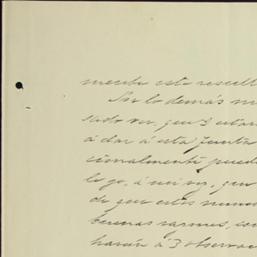 mente este result
Por lo demás m
sado ver, que V estar
á dar á esta Junta
cionalmente puede
lo yo, á mi vez, que
de que estos mom
buenas razones, con
harán á V observar